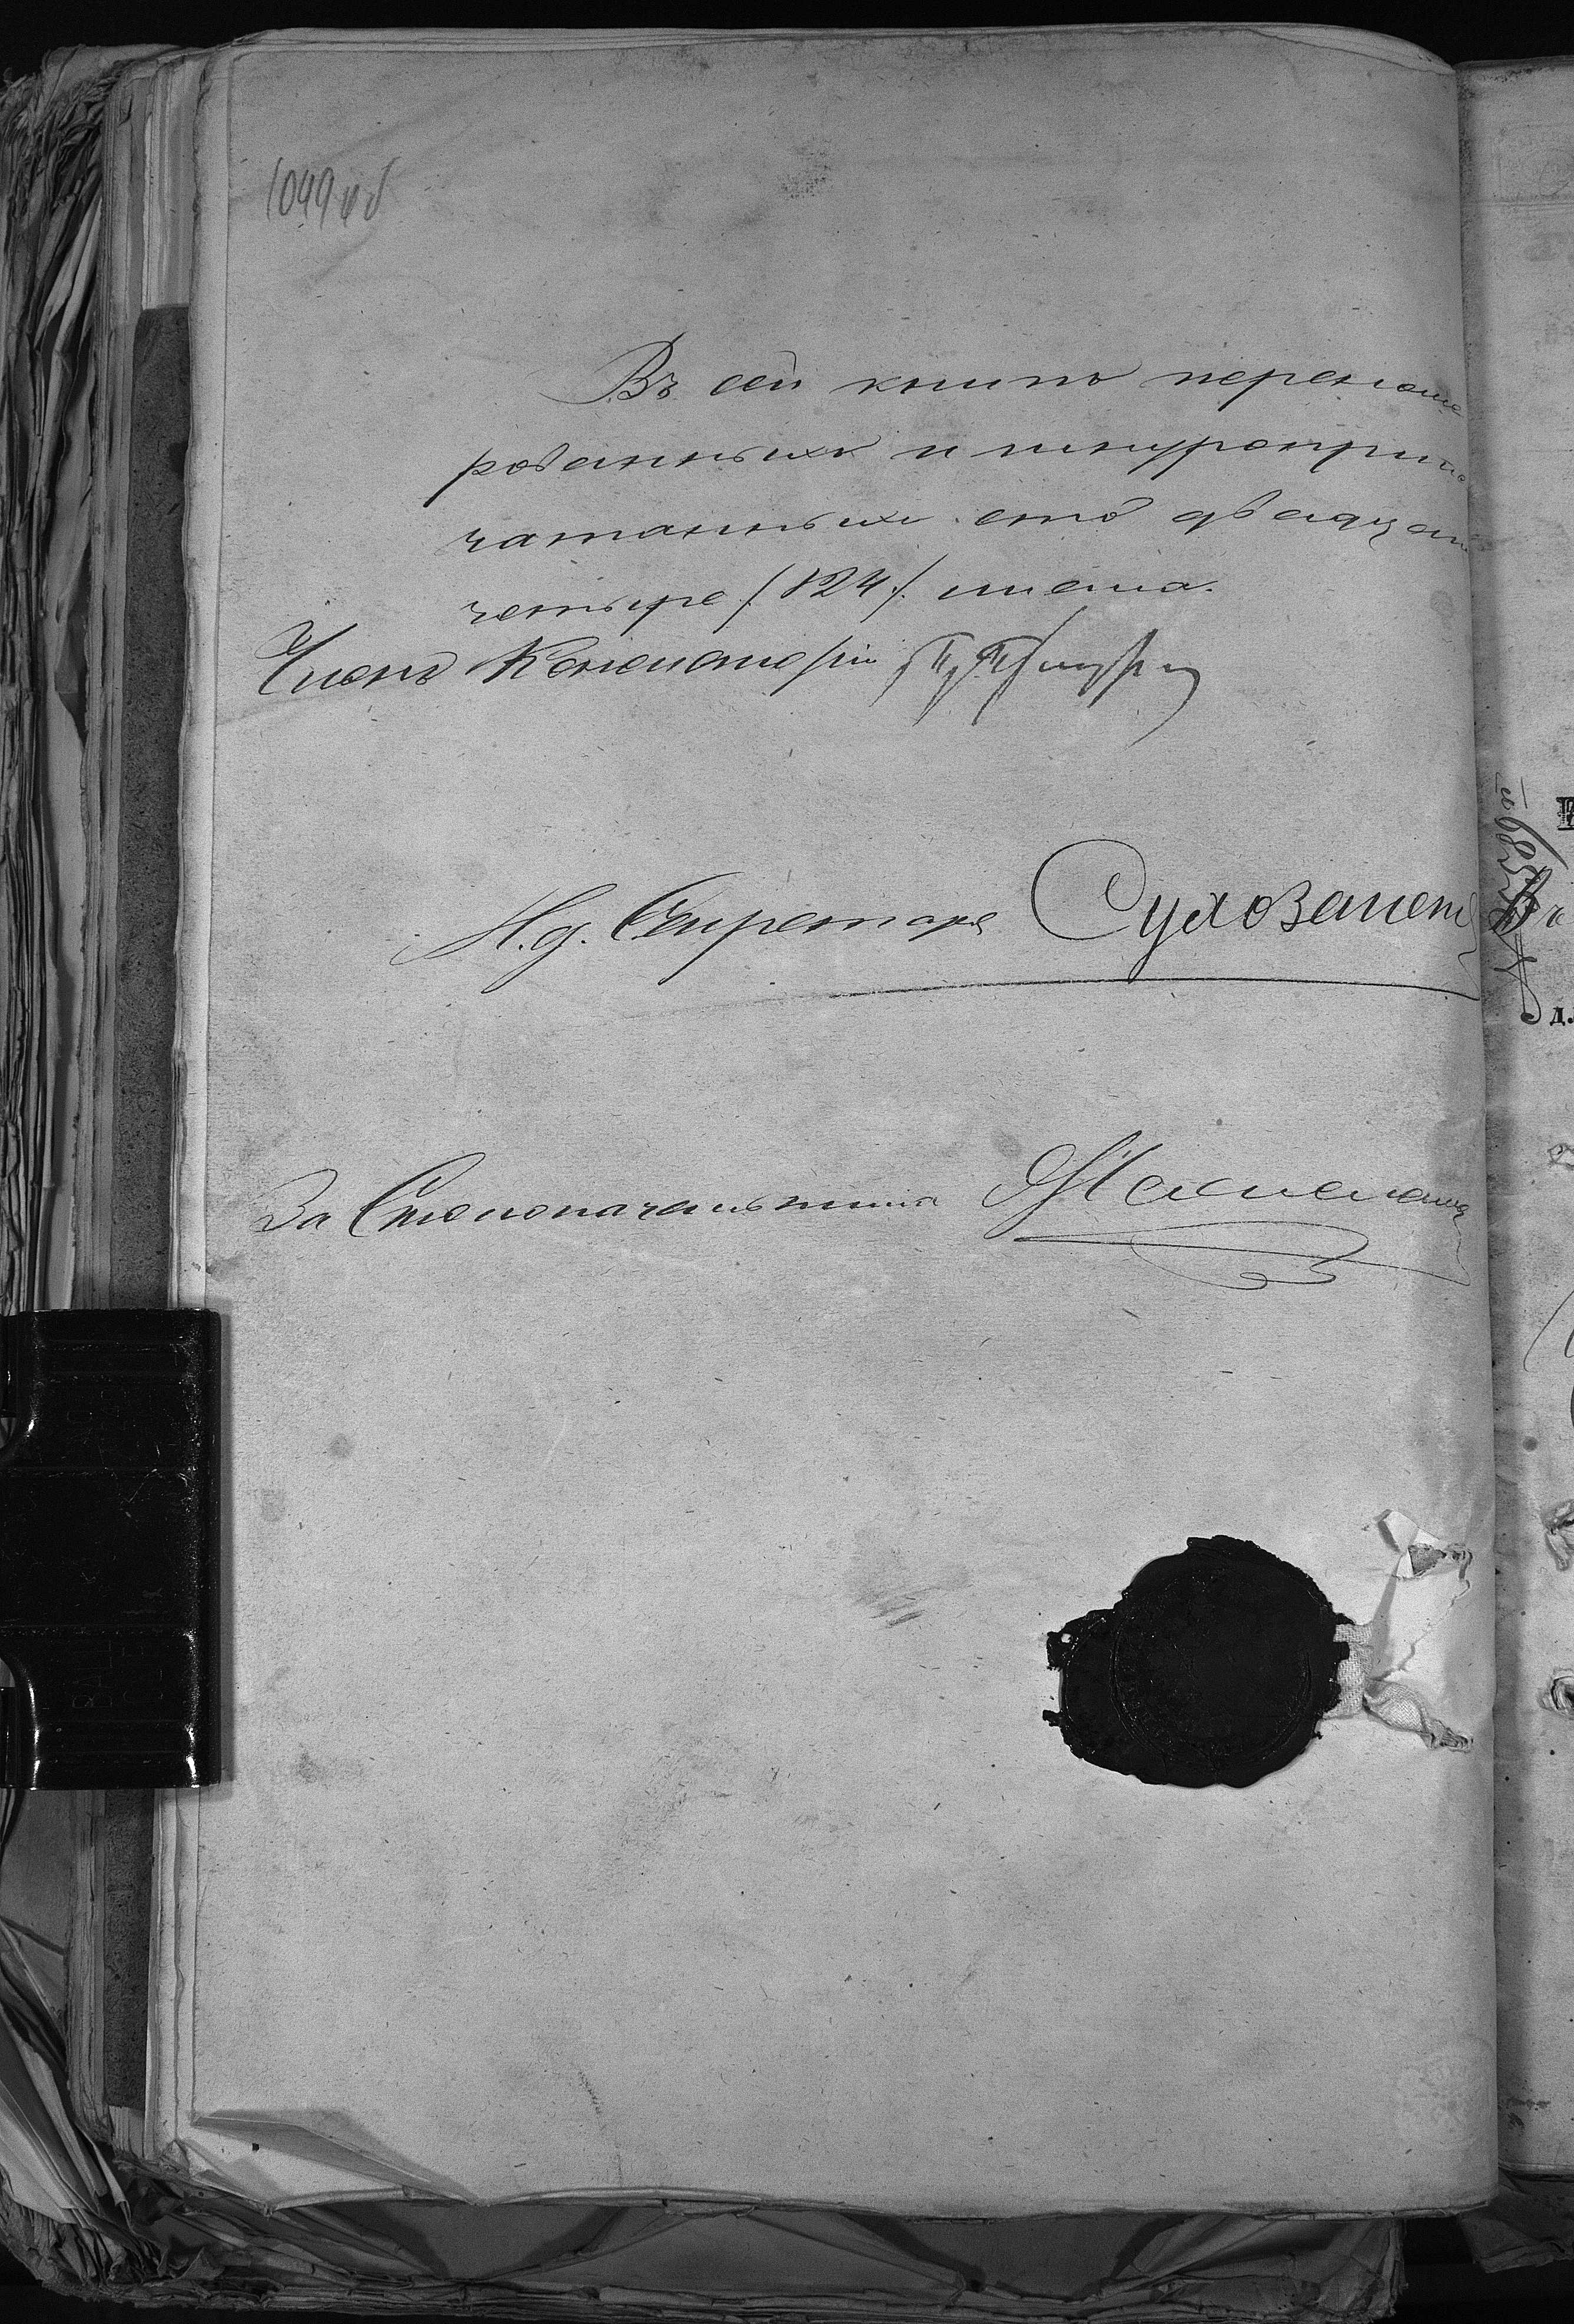 1049 об
Въ сей книгѣ перенаме
рованныхъ и шнуроприпе
чатанныхъ сто двадцать
четыре /:124:/ листа.
Членъ Консисторіи
И. д. Секретаря Суховѣ
За Столоначальника